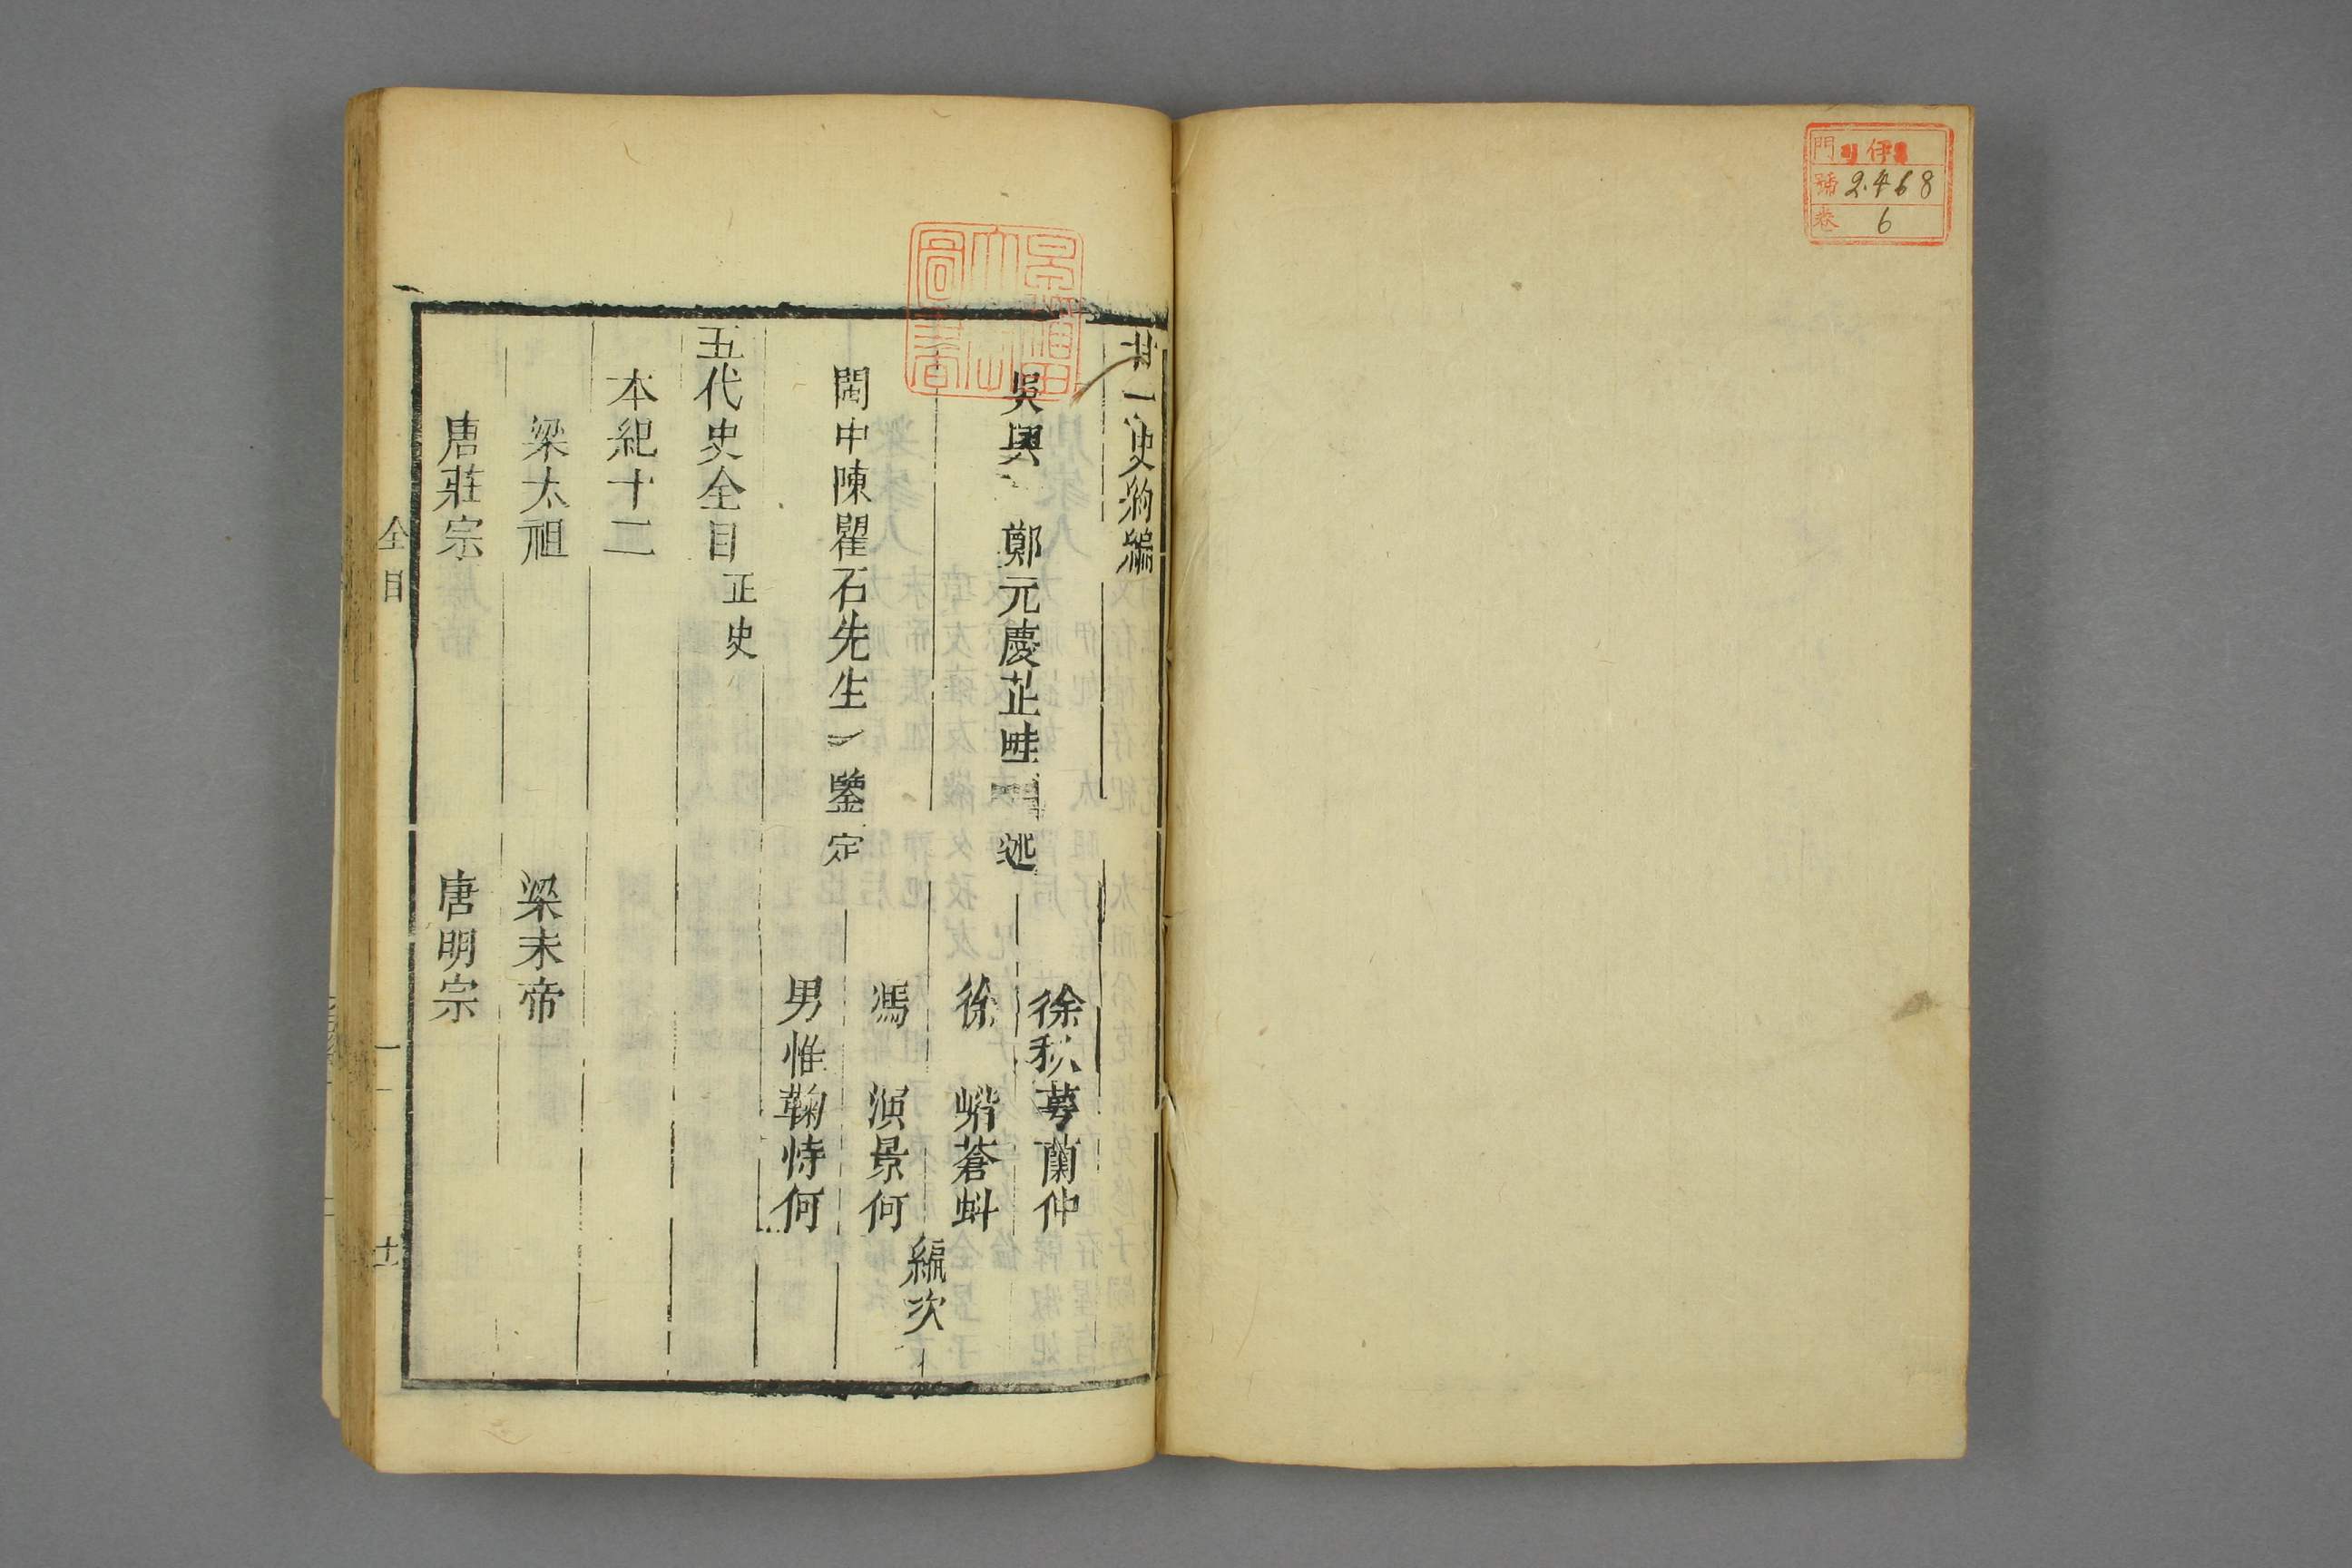 門 伊
號 2468
卷 6
廿一史約編
吳興 鄭元慶芷畦 述
閩中陳瞿石先生 鑒定
徐秋蕚蘭仲
徐 蒼蚪
馮 演景何
男惟鞠恃何
編次
五代史全目 正史
本紀十二
梁太祖 梁末帝
唐莊宗 唐明宗
全目 一
圖書